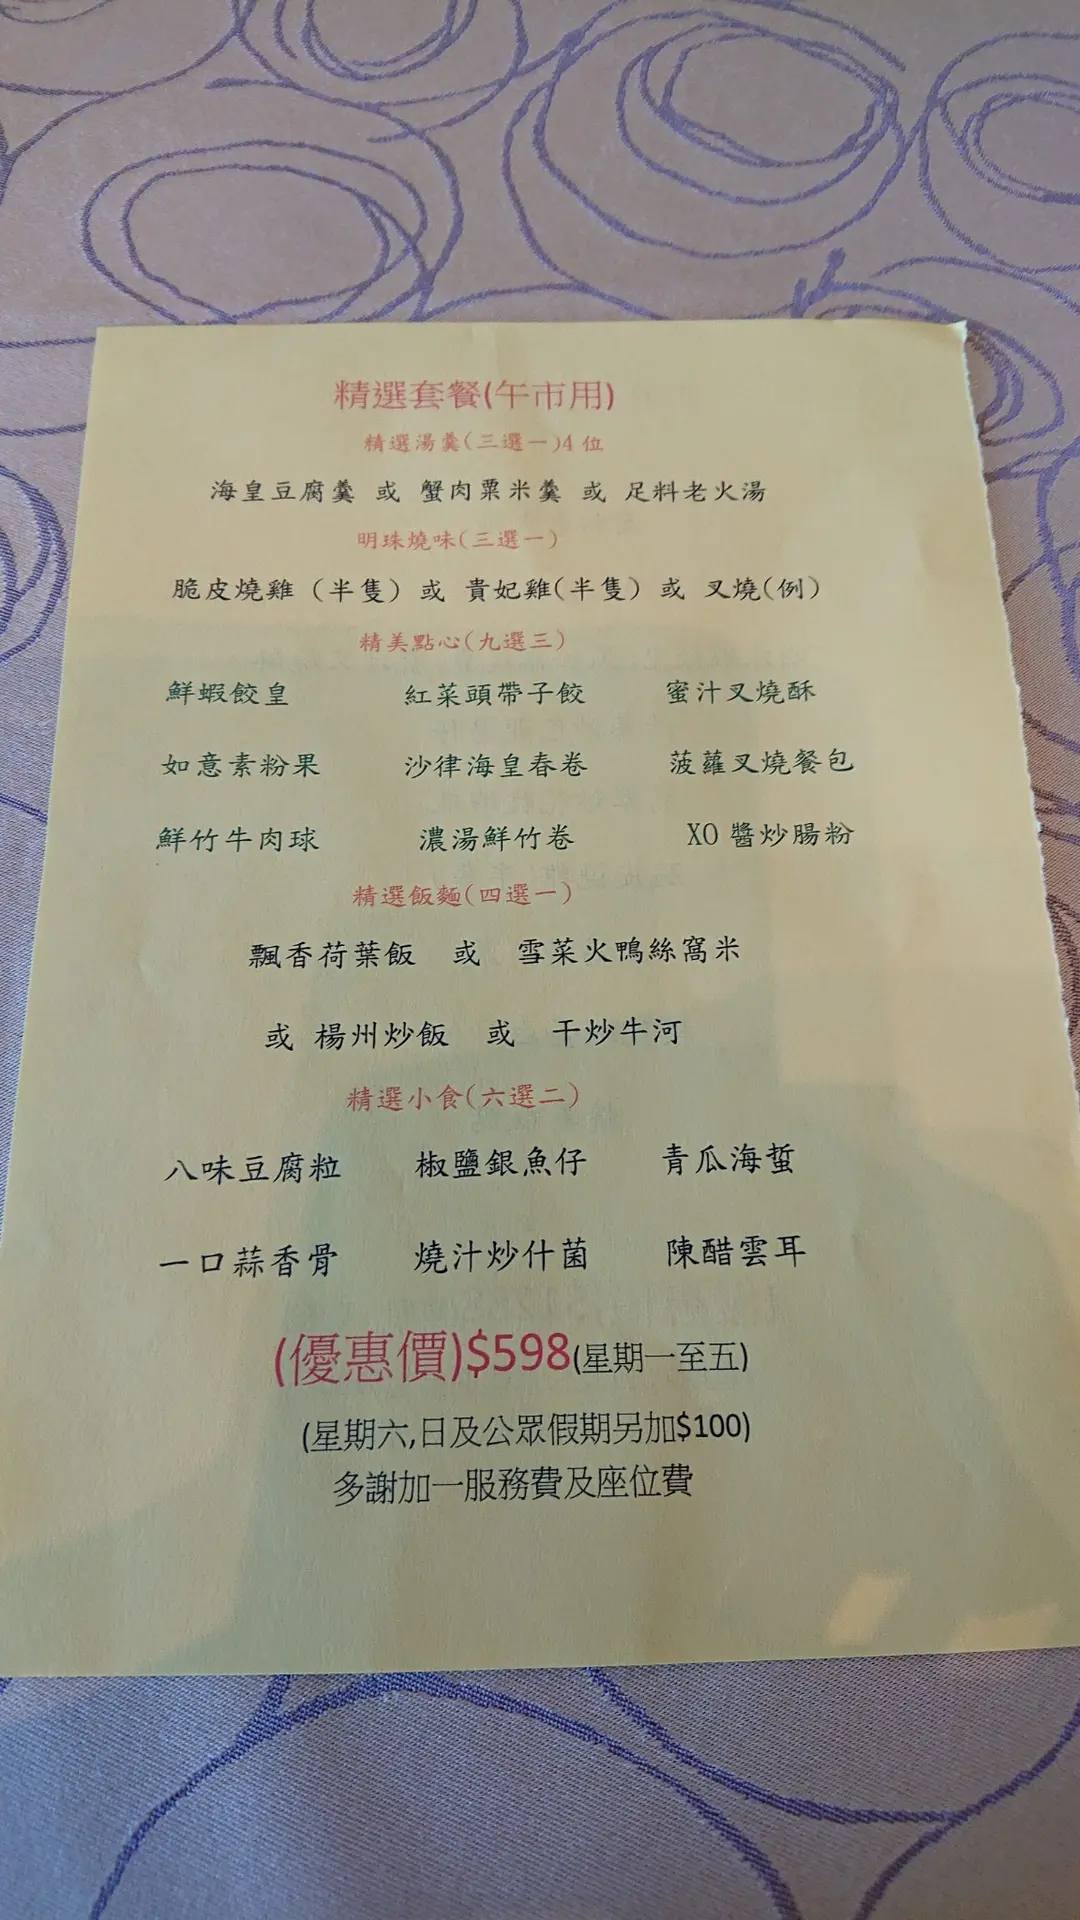 精選套餐(午市用)
精選湯羹(三選一)4 位
海皇豆腐羹 或 蟹肉粟米羹 或 足料老火湯
明珠燒味(三選一)
脆皮燒雞 (半隻) 或 貴妃雞(半隻) 或 叉燒(例)
精美點心(九選三)
鮮蝦餃皇 紅菜頭帶子餃 蜜汁叉燒酥
如意素粉果 沙律海皇春卷 菠蘿叉燒餐包
鮮竹牛肉球 濃湯鮮竹卷 XO 醬炒腸粉
精選飯麵(四選一)
飄香荷葉飯 或 雪菜火鴨絲窩米
或 楊州炒飯 或 干炒牛河
精選小食(六選二)
八味豆腐粒 椒鹽銀魚仔 青瓜海蜇
一口蒜香骨 燒汁炒什菌 陳醋雲耳
(優惠價)$598(星期一至五)
(星期六,日及公眾假期另加$100)
多謝加一服務費及座位費